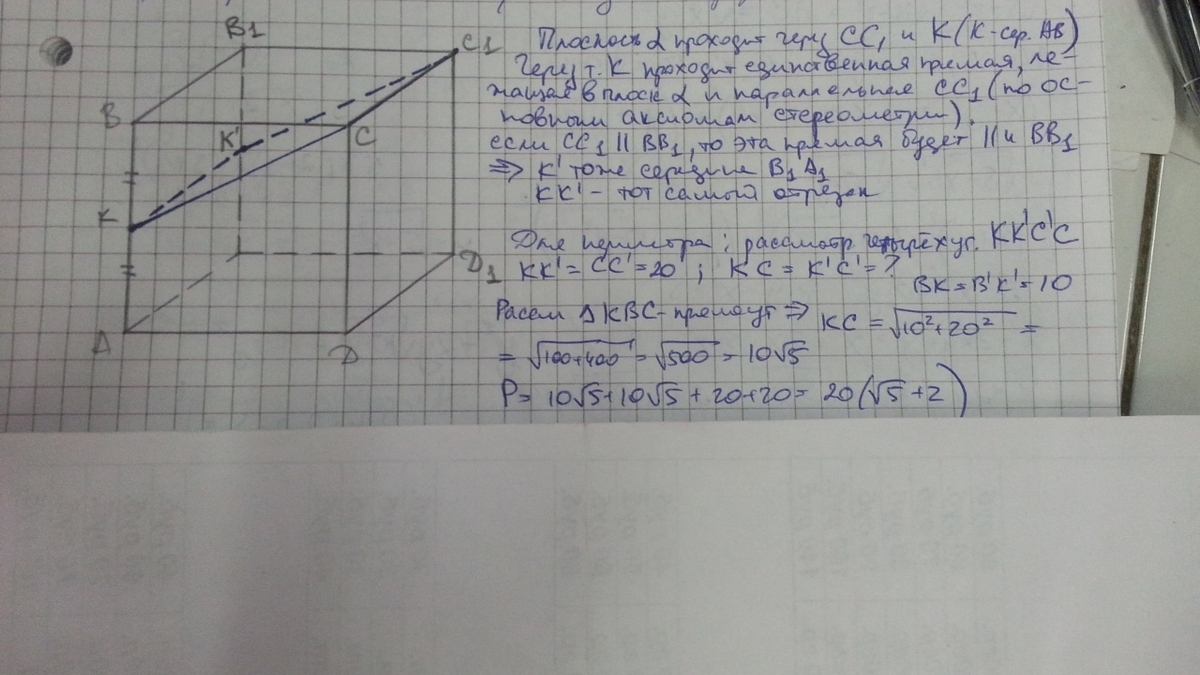 B1
C1
B
K'
C
K
D1
A
D
Плоскость α проходит через CC1 и K (K-сер. AB)
Через т. K проходит единственная прямая, ле-
жащая в плоск α и параллельная CC1 (по ос-
новным аксиомам стереометрии).
если CC1 || BB1, то эта прямая будет || и BB1
⇒ K' тоже середина B1A1
KK' - тот самый отрезок
Для периметра: рассмотр четырёхуг. KK'C'C
KK' = CC' = 20 ; KC = K'C' = ?
BK = B'K' = 10
Рассм Δ KBC - прямоуг ⇒ KC = √10² + 20² =
= √100+400 = √500 = 10√5
P = 10√5 + 10√5 + 20+20 = 20(√5 + 2)